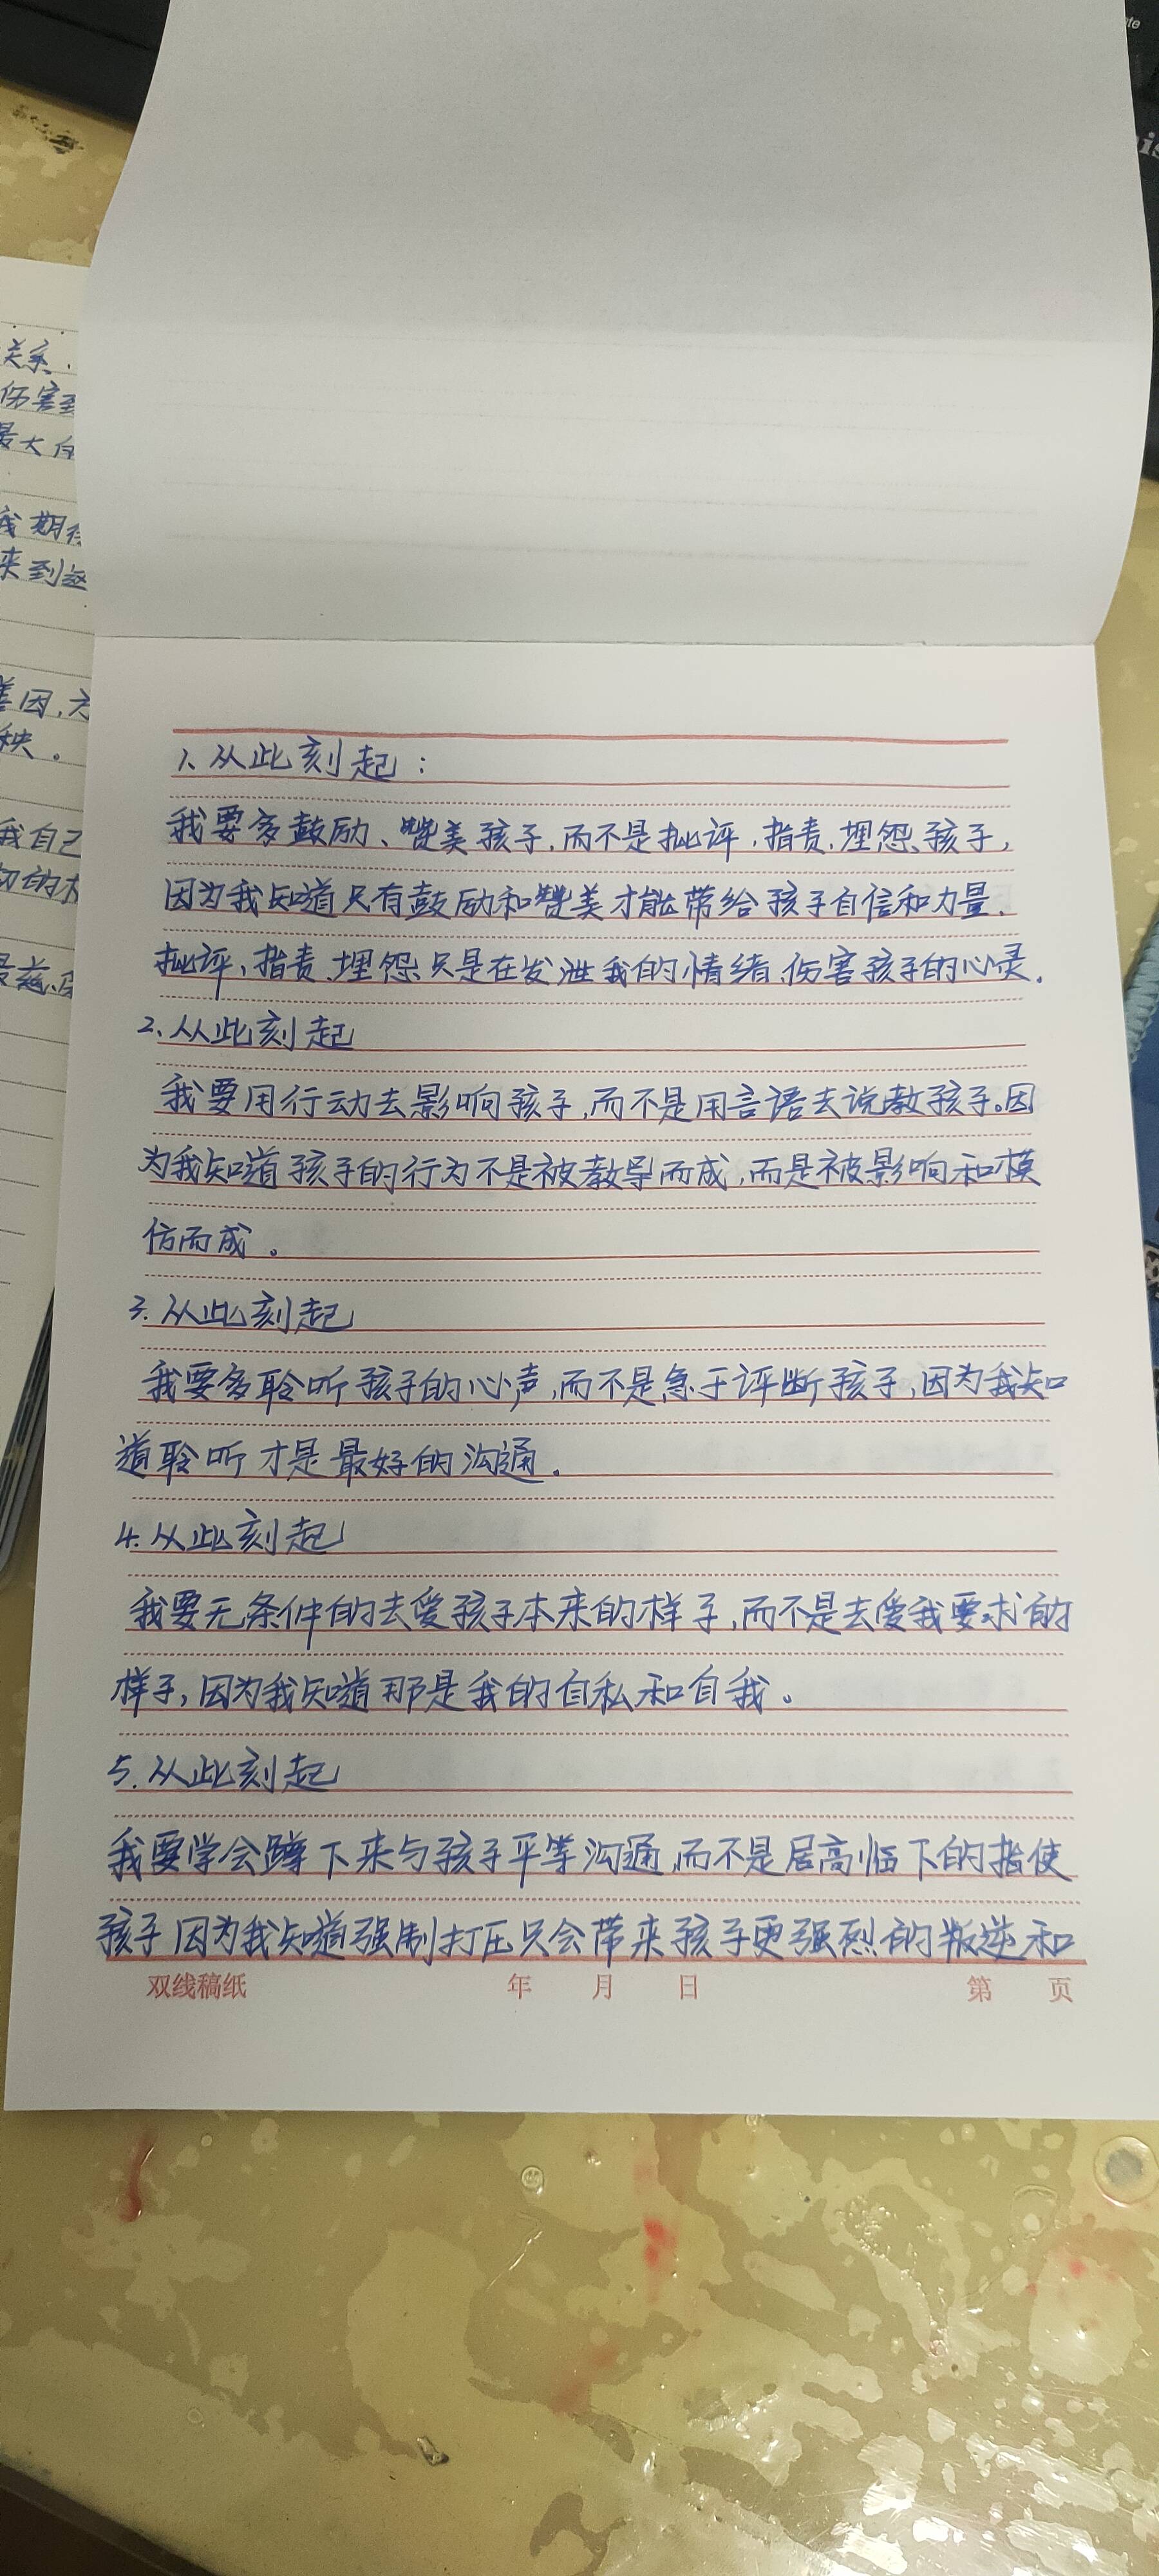 1、从此刻起：
我要多鼓励、赞美孩子,而不是批评,指责,埋怨孩子,
因为我知道只有鼓励和赞美才能带给孩子自信和力量.
批评,指责,埋怨只是在发泄我的情绪,伤害孩子的心灵.
2.从此刻起
我要用行动去影响孩子,而不是用言语去说教孩子。因
为我知道孩子的行为不是被教导而成,而是被影响和模
仿而成。
3.从此刻起
我要多聆听孩子的心声,而不是急于评断孩子,因为我知
道聆听才是最好的沟通.
4.从此刻起
我要无条件的去爱孩子本来的样子,而不是去爱我要求的
样子,因为我知道那是我的自私和自我。
5.从此刻起
我要学会蹲下来与孩子平等沟通,而不是居高临下的指使
孩子因为我知道强制打压只会带来孩子更强烈的叛逆和
双线稿纸 年 月 日 第 页
关系.
伤害到
最大的
我期待
来到这
善因,方
秧。
我自己
切的